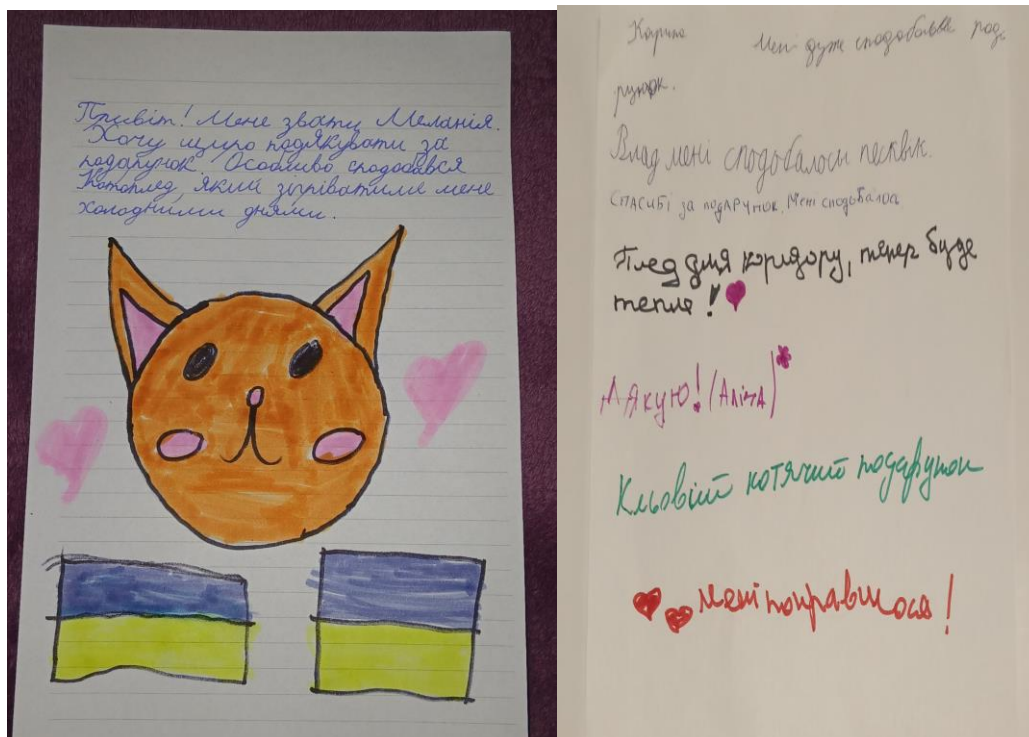 Привіт! Мене звати Меланія.
Хочу щиро подякувати за
подарунок. Особливо сподобався
Котоплед, який зігріватиме мене
холодними днями.
Каріна Мені дуже сподобався
Влад мені сподобалось
СПАСИБІ за подАРУНОК. Мені сподобалось
Плед для коридору, тепер буде
тепле!
Дякую! (Аліна)
Кльовій котячий подарунок
мені понравилося!